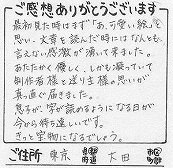 ご感想ありがとうございます
最初見た時はまず「あ、可愛い絵」を
思い・文章を読んだ時にはなんとも
言えない感激が湧いて来ました。
あたたかく優しく、しかも凝っていて
制作者様と送り主様の思いが
真っ直ぐ届きました。
息子が字が読めるようになる日が
今から待ち遠しいです。
きっと宝物になるでしょう。
ご住所 東京 都道府県 大田 市区町郡